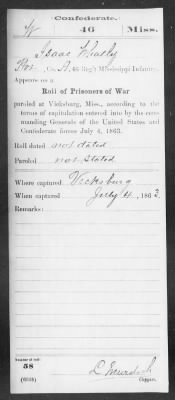 Confederate.
46 Miss.
Isaac
Co. A, 46 Reg't Mississippi Infantry.
Appears on a
Roll of Prisoners of War
paroled at Vicksburg, Miss., according to the
terms of capitulation entered into by the com-
manding Generals of the United States and
Confederate forces July 4, 1863.
Roll dated not dated
Paroled not stated
Where captured Vicksburg
When captured July 4, 1863.
Remarks:
Number of roll:
58
Copyist.